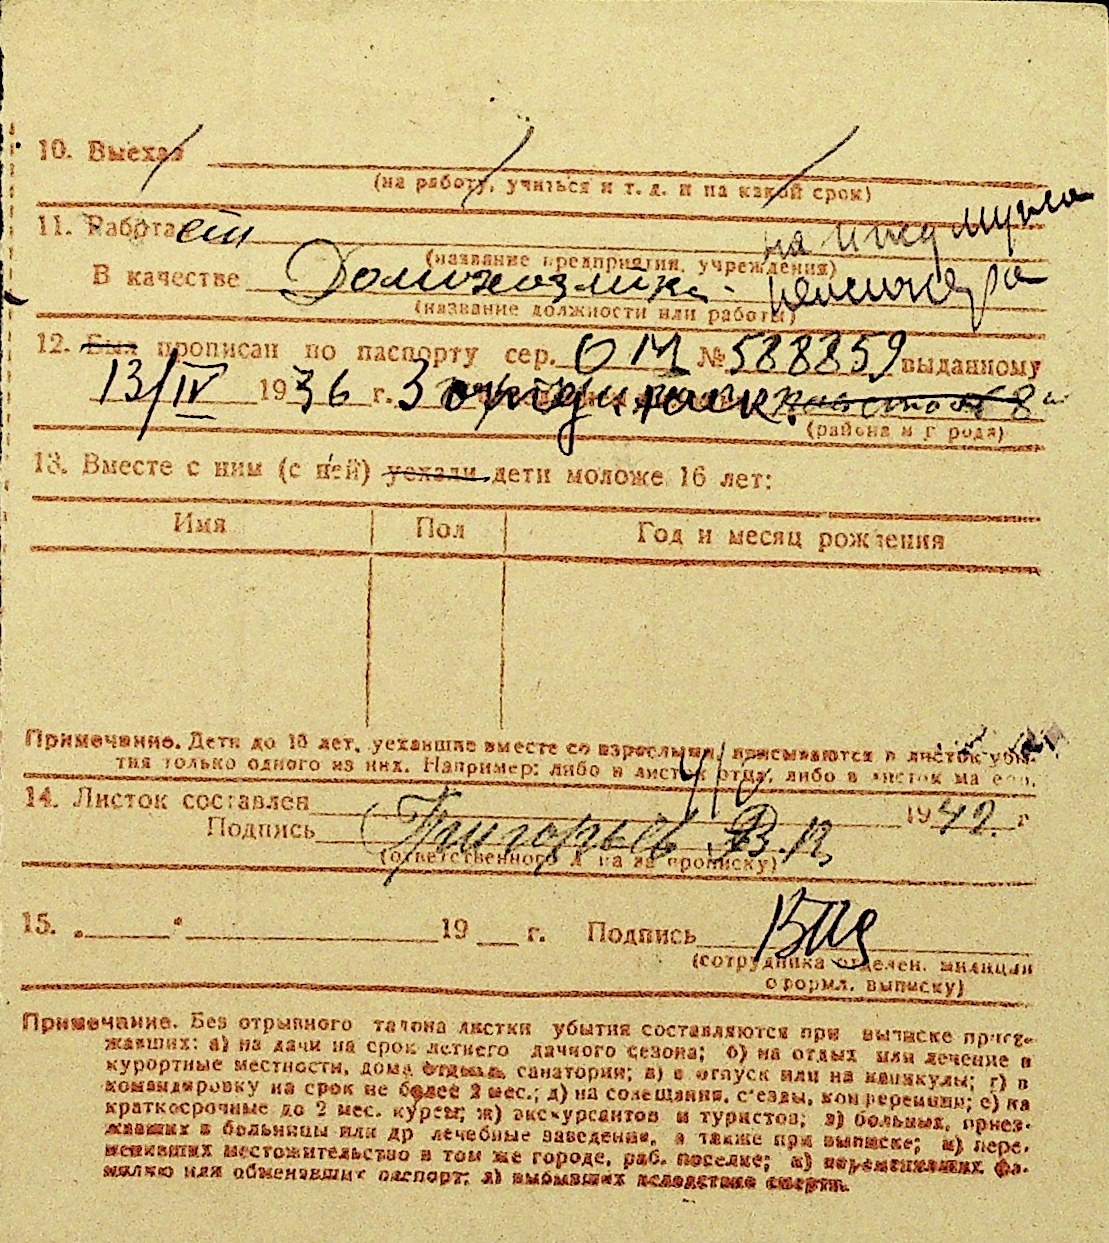 10. Выехал
(на работу, учиться и т. д. и на какой срок)
11. Работает
на ижд. мужа
(название предприятия, учреждения)
В качестве Домохозяйка - пенсионера
(название должности или работы)
12. Был прописан по паспорту сер. ОМ № 588859 выданному
13/IV 1936 г. 3
(района и города)
13. Вместе с ним (с ней) уехали дети моложе 16 лет:
Имя Пол Год и месяц рождения
Примечание. Дети до 16 лет, уехавшие вместе со взрослыми, вписываются в листок убы-
тия только одного из них. Например: либо в листок отца, либо в листок матери.
14. Листок составлен 1942 г.
Подпись Григорьев В.П.
(ответственного лица за прописку)
15. „ " 19 г. Подпись
(сотрудника отделен. милиции
оформл. выписку)
Примечание. Без отрывного талона листки убытия составляются при выписке приез-
жавших: а) на дачи на срок летнего дачного сезона; б) на отдых или лечение в
курортные местности, дома отдыха, санатории; в) в отпуск или на каникулы; г) в
командировку на срок не более 2 мес.; д) на совещания, с'езды, конференции; е) на
краткосрочные до 2 мес. курсы; ж) экскурсантов и туристов; з) больных, приез-
жавших в больницы или др лечебные заведения, а также при выписке; и) пере-
менивших местожительство в том же городе, раб. поселке; к) переменивших фа-
милию или обменявших паспорт; л) выбывших вследствие смерти.